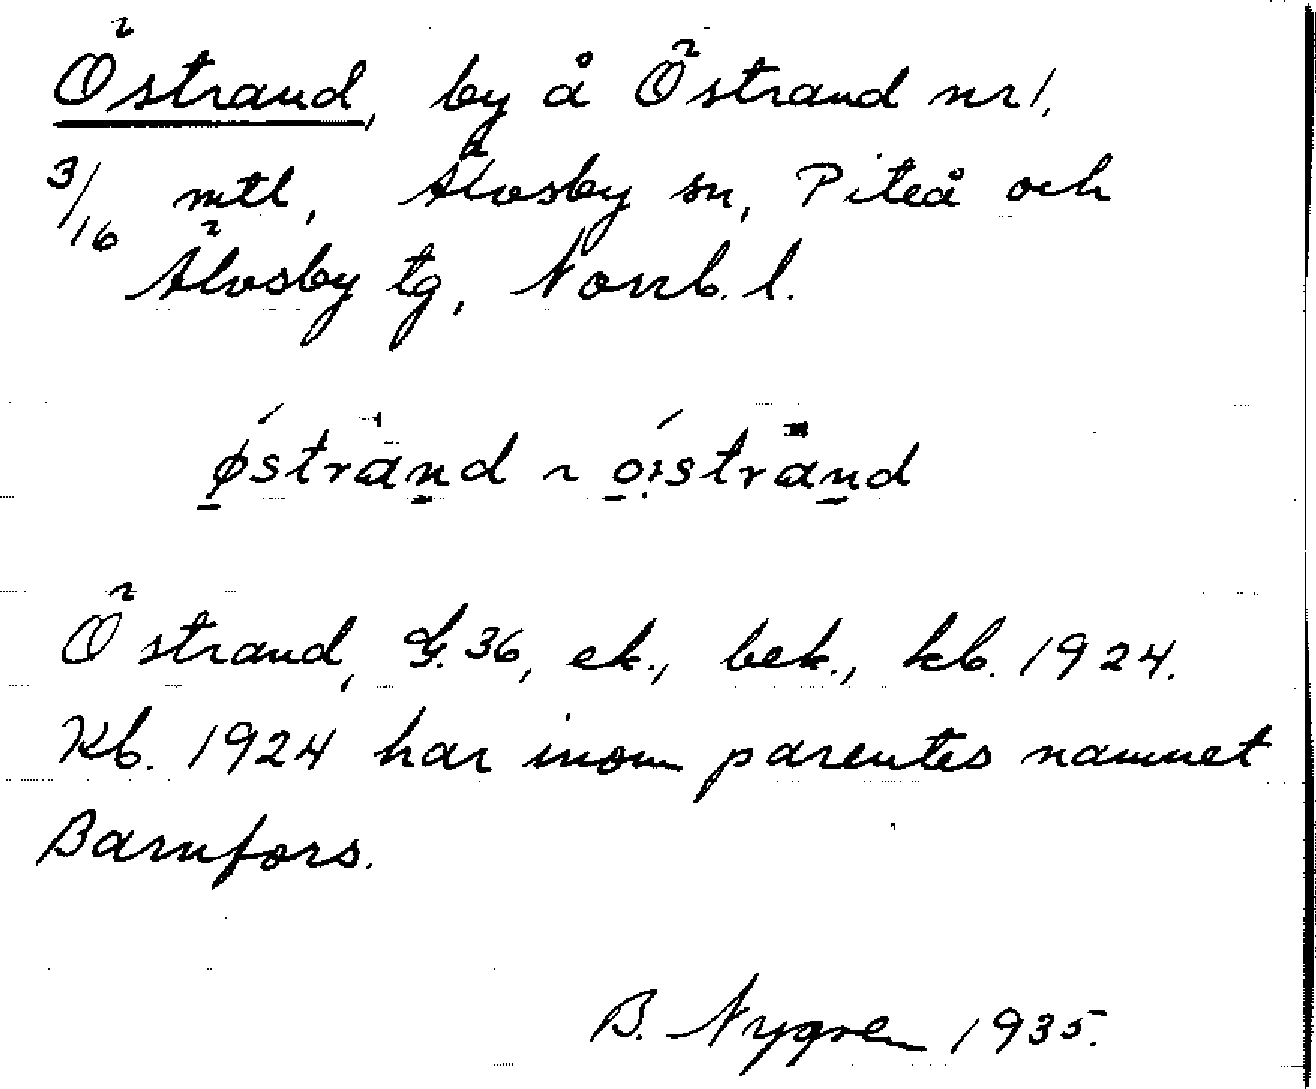 Östrand, by å Östrand nr 1,
3/16 mtl, Älvsby sn, Piteå och
Älvsby tg, Norrb. l.
østränd ~ o:strànd
Östrand, G. 36, ek., bek., kb. 1924.
Kb. 1924 har inom parentes namnet
Barnfors.
B. Nygren 1935.